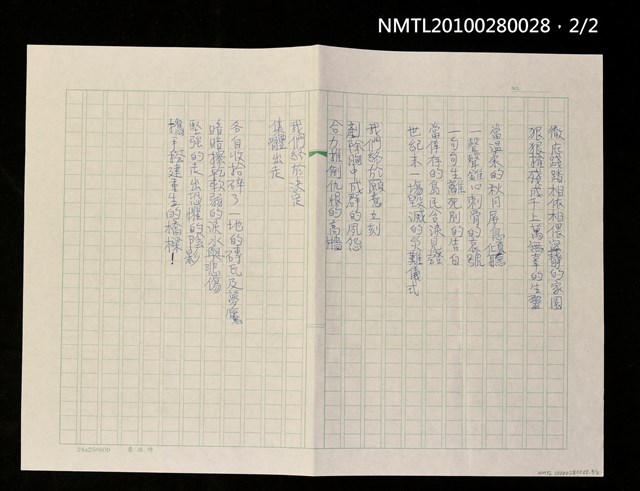 NMTL20100280028·2/2
NO.
徹底踐踏相依相偎寧靜的家園
狠狠摧殘成千上萬無辜的生靈
當溫柔的秋月屏息傾聽
一聲聲錐心刺骨的哀號
一句句生離死別的告白
當倖存的島民合淚見證
世紀末一場毀滅的災難儀式
我們終於願意立刻
剷除胸中成群的夙怨
合力推倒仇恨的高牆
我們終於決定
集體出走
各自收拾碎了一地的磚瓦及夢魘
暗暗擦乾軟弱的淚水與悲傷
堅強的走出恐懼的陰影
攜手搭建重生的橋樑！
24x25=600
NMTL 20100280028 2/2